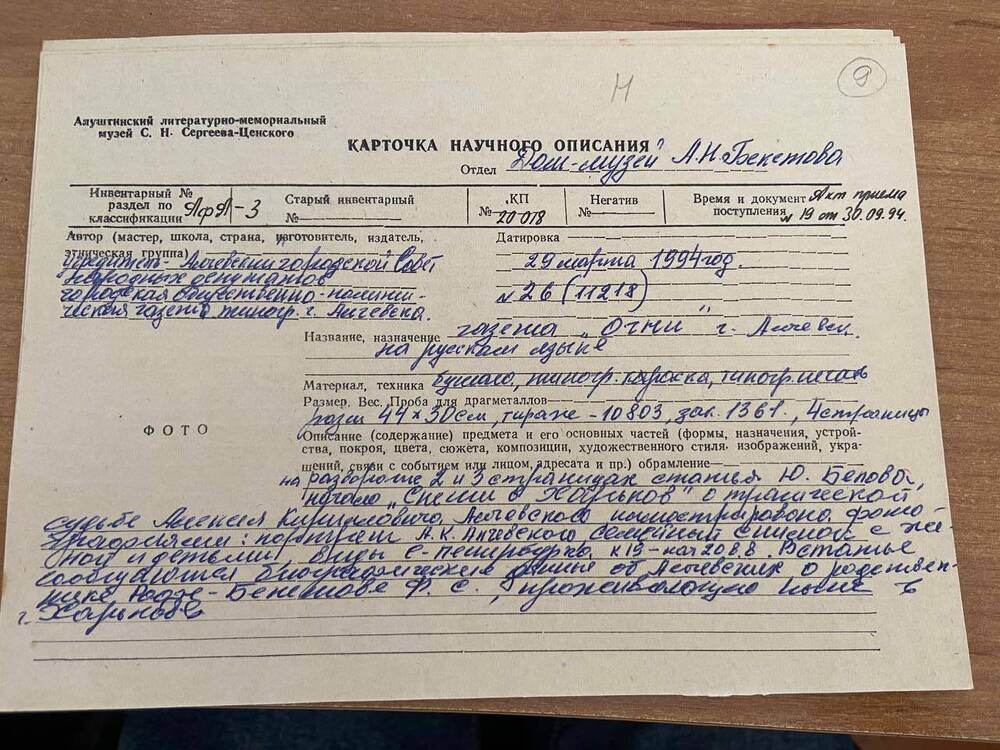 Н
9
Алуштинский литературно-мемориальный
музей С. Н. Сергеева-Ценского
КАРТОЧКА НАУЧНОГО ОПИСАНИЯ
Отдел Дом-музей А.Н. Бекетова
Инвентарный №
раздел по
классификации АфА-3
Старый инвентарный
№
КП
№ 20018
Негатив
№
Время и документ Акт приема
поступления N 19 от 30.09.94.
Автор (мастер, школа, страна, изготовитель, издатель,
этническая группа)
учредитель - Алчевский городской Совет
народных депутатов
городская общественно-полити-
ческая газета типогр. г. Алчевска.
Датировка
29 марта 1994 год.
N 26 (11218)
Название, назначение газета "Огни" г. Алчевск.
на русском языке
Материал, техника бумага, типогр. краска, типогр. печать
Размер. Вес. Проба для драгметаллов
разм 44 х 30 см, тираж - 10803, зак. 1361, 4 страницы
ФОТО
Описание (содержание) предмета и его основных частей (формы, назначения, устрой-
ства, покроя, цвета, сюжета, композиции, художественного стиля изображений, укра-
шений, связи с событием или лицом, адресата и пр.) обрамление
на развороте 2 и 3 страницах статья Ю. Белово,
начало в Харьков" о трагической
судьбе Алексея Кирилловича Алчевского иллюстрирована фото-
графиями: портрет А.К. Алчевского, семейный снимок с же-
ной и детьми, виды С-Петербурга, к 19 - нач 20 в.в. В статье
сообщаются биографические данные об Алчевских о родствен-
нике Ф. С., проживающую ныне в
г. Харькове